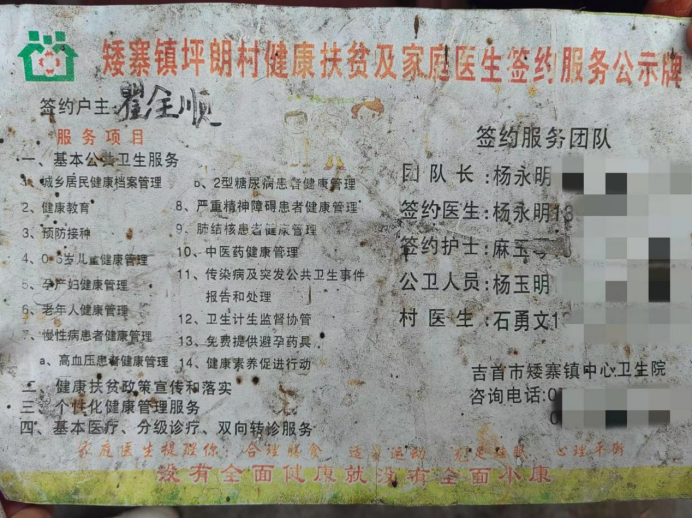 矮寨镇坪朗村健康扶贫及家庭医生签约服务公示牌
签约户主:瞿全顺
服务项目
一、基本公共卫生服务
1、城乡居民健康档案管理
2、健康教育
3、预防接种
4、0-6岁儿童健康管理
5、孕产妇健康管理
6、老年人健康管理
7、慢性病患者健康管理
a、高血压患者健康管理
b、2型糖尿病患者健康管理
8、严重精神障碍患者健康管理
9、肺结核患者健康管理
10、中医药健康管理
11、传染病及突发公共卫生事件
报告和处理
12、卫生计生监督协管
13、免费提供避孕药具
14、健康素养促进行动
二、健康扶贫政策宣传和落实
三、个性化健康管理服务
四、基本医疗、分级诊疗、双向转诊服务
签约服务团队
团队长:杨永明
签约医生:杨永明13
签约护士:麻玉
公卫人员:杨玉明
村医生:石勇文1
吉首市矮寨镇中心卫生院
咨询电话:0
家庭医生提醒你:合理膳食 适量运动 戒烟限酒 心理平衡
没有全面健康就没有全面小康